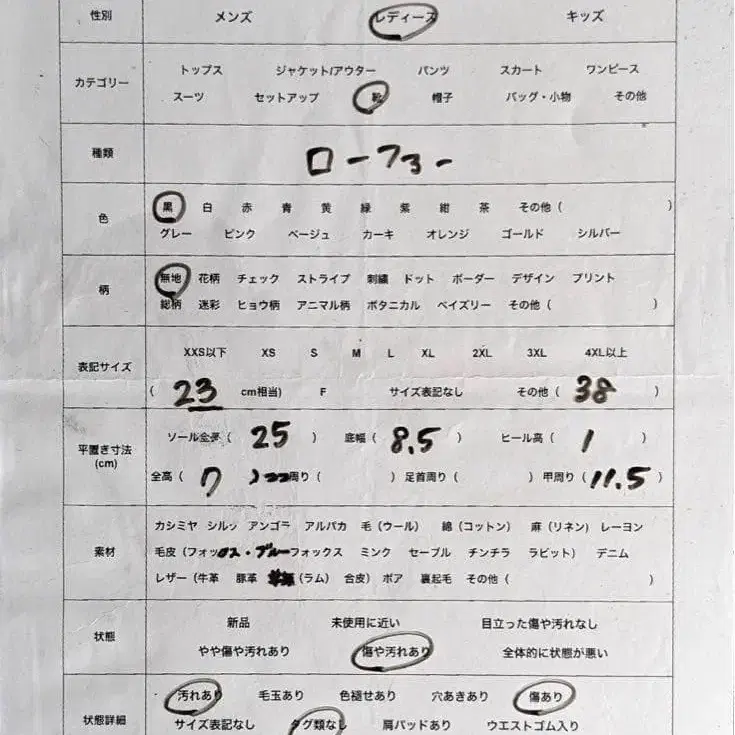 性別 メンズ レディース キッズ
カテゴリー トップス ジャケット/アウター パンツ スカート ワンピース
スーツ セットアップ 靴 帽子 バッグ・小物 その他
種類 ローファー
色 黒 白 赤 青 黄 緑 紫 紺 茶 その他 ( )
グレー ピンク ベージュ カーキ オレンジ ゴールド シルバー
柄 無地 花柄 チェック ストライプ 刺繍 ドット ボーダー デザイン プリント
総柄 迷彩 ヒョウ柄 アニマル柄 ボタニカル ペイズリー その他 ( )
表記サイズ XXS以下 XS S M L XL 2XL 3XL 4XL以上
( 23 cm相当) F サイズ表記なし その他 ( 38 )
平置き寸法 (cm) ソール全長 ( 25 ) 底幅 ( 8.5 ) ヒール高 ( 1 )
全高 ( 7 ) 周り ( ) 足首周り ( ) 甲周り ( 11.5 )
素材 カシミヤ シルク アンゴラ アルパカ 毛 (ウール) 綿 (コットン) 麻 (リネン) レーヨン
毛皮 (フォックス・ブルーフォックス ミンク セーブル チンチラ ラビット) デニム
レザー (牛革 豚革 (ラム) 合皮) ボア 裏起毛 その他 ( )
状態 新品 未使用に近い 目立った傷や汚れなし
やや傷や汚れあり 傷や汚れあり 全体的に状態が悪い
状態詳細 汚れあり 毛玉あり 色褪せあり 穴あきあり 傷あり
サイズ表記なし タグ類なし 肩パッドあり ウエストゴム入り